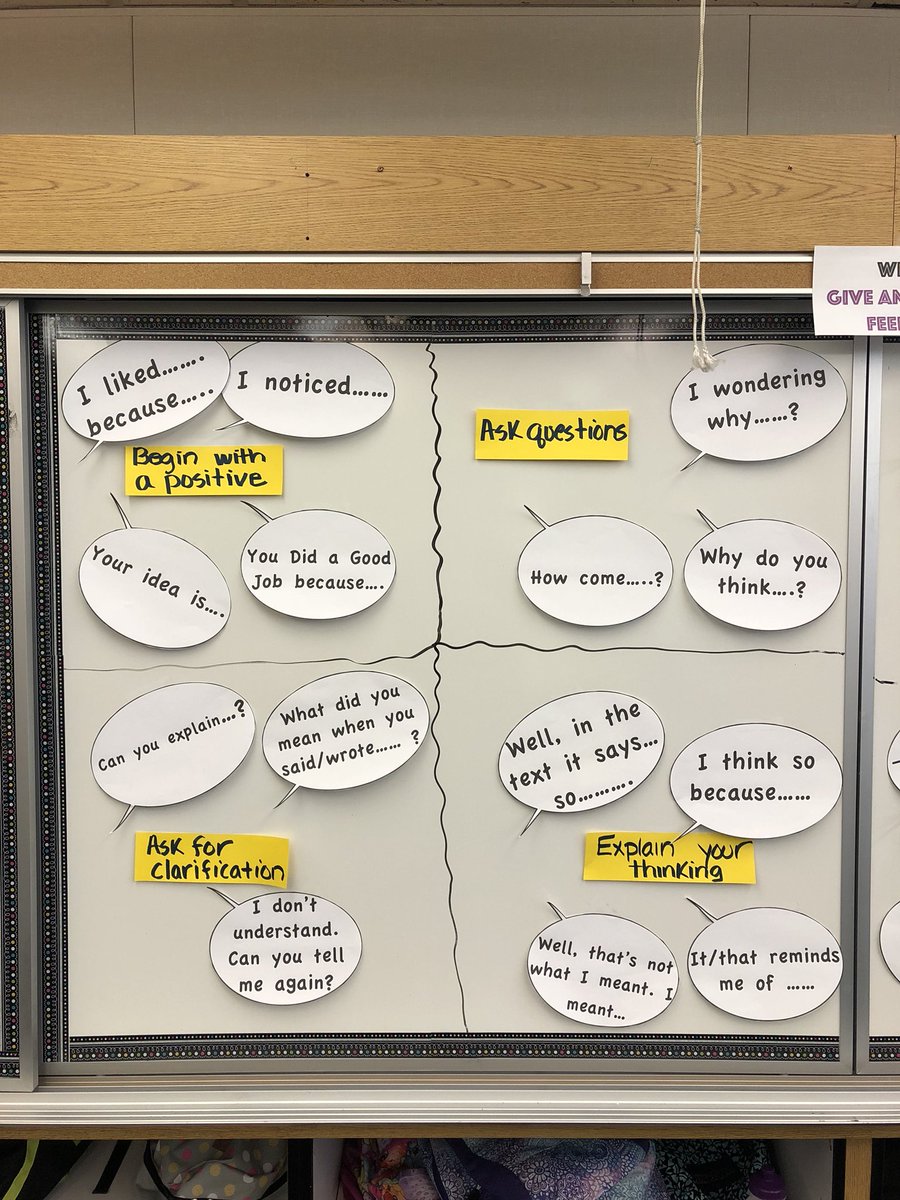 GIVE AN
I liked.......
because.....
I noticed......
Begin with
a positive
Your idea is....
You Did a Good
Job because....
Ask questions
I wondering
why......?
How come.....?
Why do you
think....?
Can you explain...?
What did you
mean when you
said/wrote...... ?
Ask for
clarification
I don't
understand.
Can you tell
me again?
Well, in the
text it says...
so..........
I think so
because......
Explain your
thinking
Well, that's not
what I meant. I
meant...
It/that reminds
me of ......